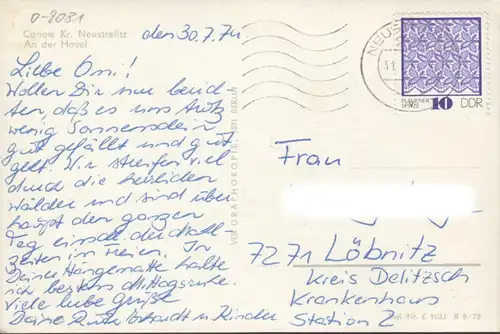 0-8081
Canow Kr. Neustrelitz
An der Havel
den 30.7.74
Liebe Omi!
Wollen Dir nur berich-
ten, daß es uns trotz
wenig Sonnenschein
gut gefällt und gut
geht. Wir streifen viel
durch die herrlichen
Wälder und sind über-
haupt den ganzen
Tag einschl. der Mahl-
zeiten im Freien. In
Deiner Hängematte halte
ich bestens Mittagsruhe.
Viele liebe Grüße
Deine Ruth und Kinder
VEB GRAPHOKOPIE, 1401 BERLIN
NEUS
31.
PLAUENER
SPITZE
10 DDR
Frau
7271 Löbnitz
Kreis Delitzsch
Krankenhaus
Station 2
E 1033 B 8/72